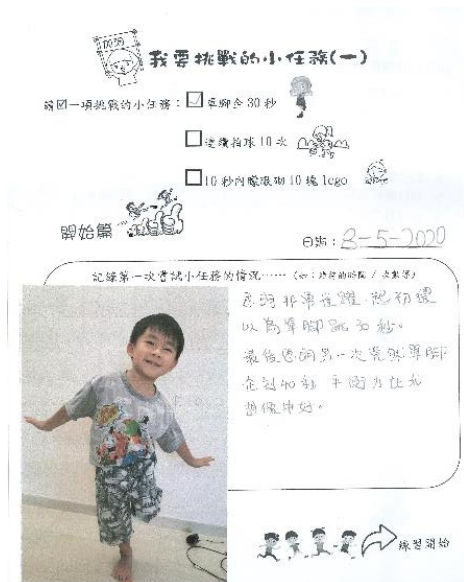 加油
我要挑戰的小任務(一)
請囗一項挑戰的小任務：☑單腳企30秒
☐連續拍球10次
☐10秒內矇眼砌10塊lego
開始篇
日期：3-5-2020
記錄第一次嘗試小任務的情況…… (如：維持的時間 / 次數等)
非常雀躍，起初還
以為單腳跳30秒。
最後 第一次竟然單腳
企到40秒，平衡力比我
想像中好。
練習開始